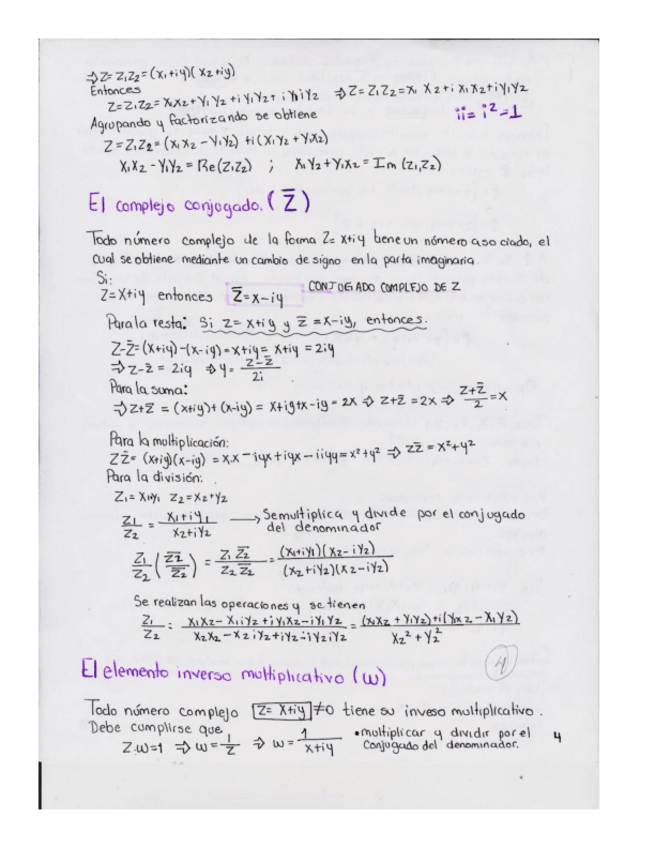 ⇒ Z=Z₁Z₂=(x₁+iy)(x₂+iy)
Entonces
Z=Z₁Z₂= X₁X₂+Y₁Y₂+iY₁Y₂+iY₁iY₂ ⇒ Z=Z₁Z₂=X₁X₂+iX₁X₂+iY₁Y₂
ii=i²=1
Agrupando y factorizando se obtiene
Z=Z₁Z₂=(X₁X₂-Y₁Y₂)+i(X₁Y₂+Y₁X₂)
X₁X₂-Y₁Y₂=Re(Z₁Z₂) ; X₁Y₂+Y₁X₂=Im(Z₁,Z₂)
El complejo conjugado.(Z̅)
Todo número complejo de la forma Z=x+iy tiene un número asociado, el
cual se obtiene mediante un cambio de signo en la parta imaginaria.
Si:
Z=X+iy entonces Z̅=x-iy CONJUGADO COMPLEJO DE Z
Para la resta: Si Z=x+iy y Z̅=x-iy, entonces.
Z-Z̅=(x+iy)-(x-iy)=x+iy=x+iy=2iy
⇒ Z-Z̅=2iy ⇒ y=Z-Z̅/2i
Para la suma:
⇒ Z+Z̅=(x+iy)+(x-iy)=x+iy+x-iy=2x ⇒ Z+Z̅=2x ⇒ Z+Z̅/2=x
Para la multiplicación:
ZZ̅=(x+iy)(x-iy)=x.x-iyx+iyx-iiyy=x²+y² ⇒ ZZ̅=x²+y²
Para la división:
Z₁=X₁Y₁ Z₂=X₂+Y₂
Z₁/Z₂=X₁+iY₁/X₂+iY₂ → Se multiplica y divide por el conjugado
del denominador
Z₁/Z₂(Z̅₂/Z̅₂)=Z₁Z̅₂/Z₂Z̅₂=(X₁+iY₁)(X₂-iY₂)/(X₂+iY₂)(X₂-iY₂)
Se realizan las operaciones y se tienen
Z₁/Z₂=X₁X₂-X₁iY₂+iY₁X₂-iY₁Y₂/X₂X₂-X₂iY₂+iY₂-iY₂iY₂=(X₁X₂+Y₁Y₂)+i(Y₁X₂-X₁Y₂)/X₂²+Y₂²
4
El elemento inverso multiplicativo (w)
Todo número complejo Z=X+iy ≠0 tiene su inveso multiplicativo.
Debe cumplirse que
Z.w=1 ⇒ w=1/Z ⇒ w=1/x+iy •multiplicar y dividir por el
Conjugado del denominador.
4